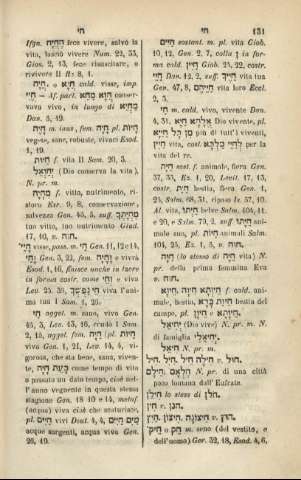 חי
חי
131
Ifgn. הֶחֱיָה fece vivere, salvò la
vita, lasciò vivere Num. 22, 33,
Gios. 2, 13, fece risuscitare, o
rivivere II Rs 8, 1.
חֲיָה, o חֲיָא cald. visse, imp.
חֱיִי — Af. part. מַחֵא conser-
vava vivo, in luogo di מַחְיֵא
Dan. 5, 19.
חָיֶה m. (aus, fem. חָיָה pl. חָיוֹת
vegete, sane, robuste, vivaci Esod.
1, 19.
חַיּוּת f. vita II Sam. 20, 3.
יְחִיאֵל (Dio conserva la vita),
N. pr. m.
מִחְיָה f. vitto, nutrimento, ri-
storo Esr. 9, 8, conservazione,
salvezza Gen. 45, 5, suff. מִחְיָתְךָ
tuo vitto, tuo nutrimento Giud.
17, 10,
חַי visse, pass. m. Gen. 11, 12 e 14,
Gen. 5, 22, fem. e vivrà
Esod. 1, 16, finisce anche in tacere
in forma costr. come e viva
Lev. 25. 39, חֵי נַפְשְׁךָ viva l'ani-
ma tua I Sam. 1, 26.
חַי agget. m. sano, vivo Gen.
46, 3, Lev. 13, 16, crudo I Sam.
2, 15, agget. fem. חַיָּה (pl. חַיּוֹת
viva Gen. 1, 21, Lev. 14, 4, vi-
gorosa, che sta bene, sana, viven-
te, כָּעֵת חַיָּה come tempo di vita
o passato un dato tempo, cioè nel-
l'anno vegnente in questa stessa
stagione Gen. 18 10 e 14, metaf.
(acqua) viva cioè che scaturisce,
pl. חַיִּים vivi Deut. 4, 4, מַיִם חַיִּים
acque sorgenti, acqua viva Gen.
26, 19.
חַיִּים sostant. m. pl. vita Giob.
10, 12, Gen. 2, 7, colla ן in
forma cald. חַיִּין Giob. 25, 22, costr.
חַיֵּי Dan. 12, 2, suff. חַיֶּיךָ vita tua
Gen. 47, 8, חַיֵּיהֶם vita loro Eccl.
2, 3.
חַי m. cald. vivo, vivente Dan.
4, 31, אֱלָהָא חַיָּא Dio vivente, pl.
מִן כָּל חַיַּיָּא più di tutt'i viventi,
vita, costr. לְחַיֵּי מַלְכָּא per la
vita del re.
חַיָּה sost. f. animale, fiera Gen.
37, 33, Ez. 1, 20, Levit. 17, 13,
costr. חַיַּת bestia, fiera Gen. 1,
25, Salm. 68, 31, riposo Is. 57, 10.
Al. vita, חַיְתוֹ belve Salm. 104, 11.
e 20, e Salm. 79, 2, suff. חַיָּתוֹ ani-
male suo, pl. חַיּוֹת animali Salm.
104, 25, Ez. 1, 5,
חַוָּה (lo stesso di חַיָּה vita) N.
pr. della prima femmina Eva
חֵיוָא, חֵיוָה, חֵיוְתָא f. cald. ani-
male, חֵיוַת בָּרָא bestia, bestia del
campo, pl. חֵיוָן e חֵיוָתָא.
יְחִיאֵל (Dio vive) N. pr. m. N.
di famiglia יְחִיאֵלִי.
חִיאֵל N. pr. m.
חַיִל, חֵיל, חִילָה, חֵיל v. חול.
חֵילָם, חֵלָאם N. pr. di una città
poco lontana dall' Eufrate.
חִילֵן lo stesso di
חִין v. חנן.
חַיִץ, חִיצוֹן, חִיצוֹנָה v.
חֵיק o חֵק m. seno (del vestito, e
dell'uomo) Gor. 32, 18, Esod. 4, 6,